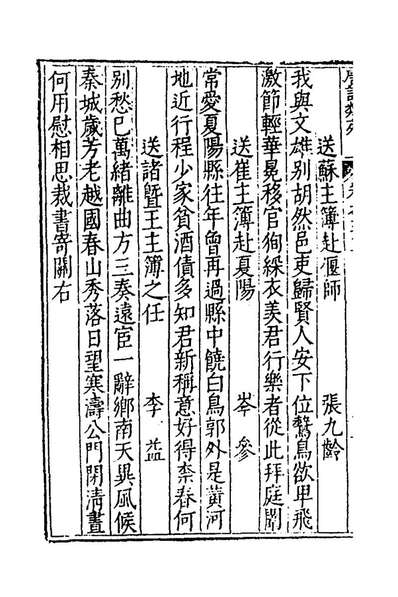 送蘇主簿赴偃師　張九齡
我與文雄别胡然邑吏歸賢人安下位鷙鳥欲卑飛
激節輕華冕移官徇綵衣羨君行樂者從此拜庭闈
送崔主簿赴夏陽　岑參
常愛夏陽縣往年曾再過縣中饒白鳥郭外是黄河
地近行程少家貧酒債多知君新稱意好得柰春何
送諸暨王主簿之任　李益
别愁已萬緒離曲方三奏遠宦一辭鄉南天異風候
秦城歲芳老越國春山秀落日望寒濤公門閉清晝
何用慰相思裁書寄關右